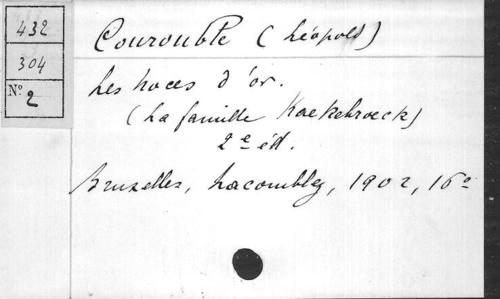 432
304
N° 2
Courouble (Léopold)
Les noces d'or.
(La famille Kaekebroeck)
2e éd.
Bruxelles, Lacomblez, 1902, 16°